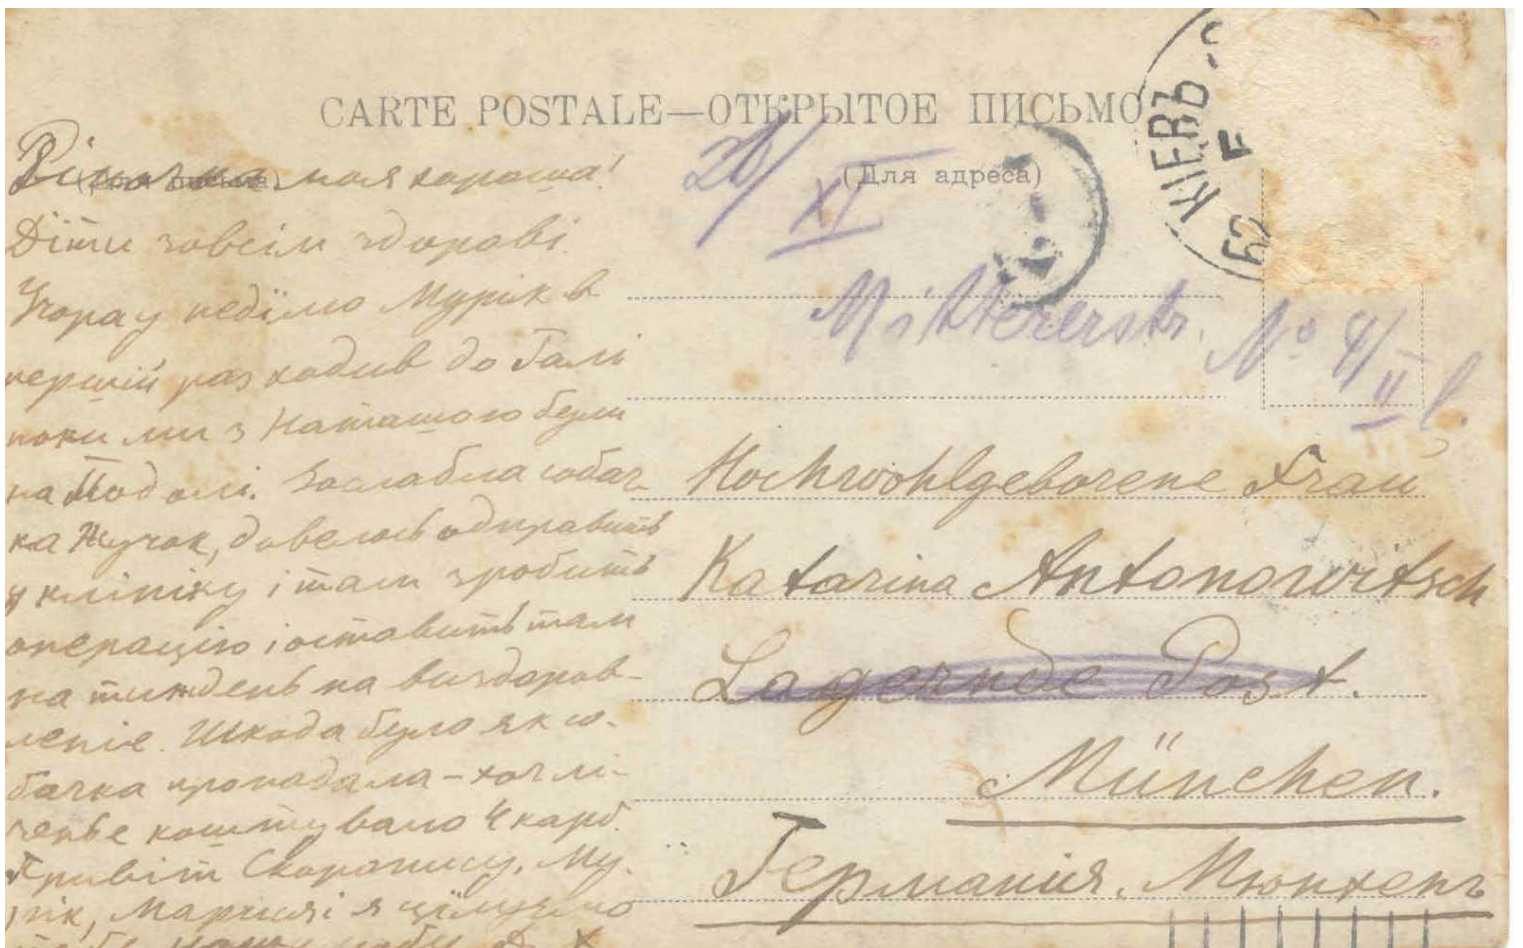 CARTE POSTALE—ОТКРЫТОЕ ПИСЬМО
(Для письма)
(Для адреса)
КІЕВЪ
моя хороша!
Діти зовсім здорові
Учора у неділю Мурік в
першій раз ходив до Галі
поки ми з Наташою були
на Подолі. Заслабла собач-
ка Жучок, довелось одправить
у клініку і там зробить
операцію і оставить там
на тиждень на виздоров-
леніє. Шкода було як со-
бачка пропадала – хоч лі-
ченье коштувало 4 карб.
Привіт Скоропису. Му-
рік, Маруся і я цілуємо
20/XI
Mittererstr. No 4/II l.
Hochwohlgeborene Frau
Katarina Antonowitsch
Lagernde Post.
München.
Германія. Мюнхенъ